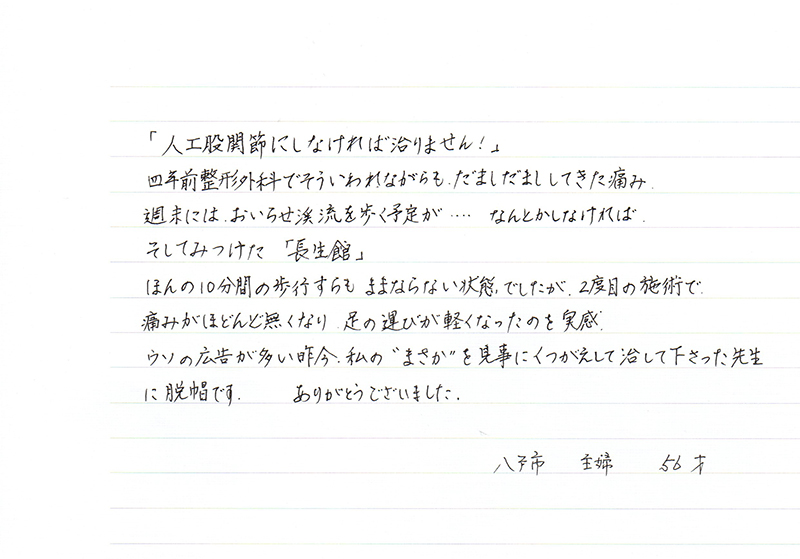 「人工股関節にしなければ治りません!」
四年前整形外科でそういわれながらも、だましだまししてきた痛み.
週末には、おいらせ渓流を歩く予定が‥‥ なんとかしなければ.
そしてみつけた「長生館」
ほんの10分間の歩行すらも ままならない状態、でしたが、2度目の施術で.
痛みがほどんど無くなり 足の運びが軽くなったのを実感.
ウソの広告が多い昨今、私の〝まさか〟を見事にくつがえして治して下さった先生
に脱帽です. ありがとうございました.
八戸市 主婦 56才